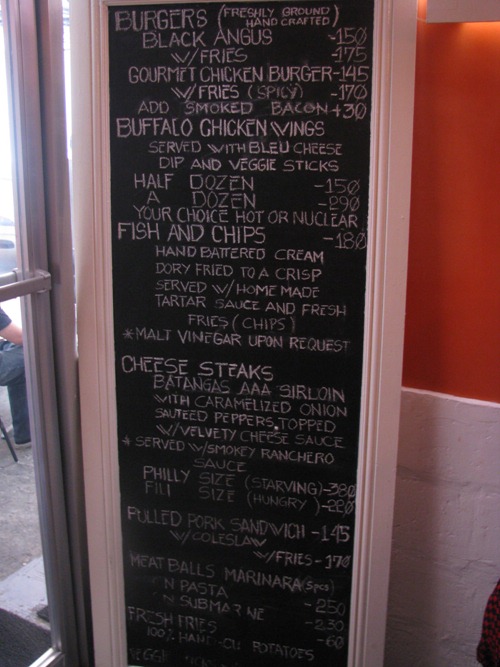 BURGERS (FRESHLY GROUND HAND CRAFTED)
BLACK ANGUS -150
W/ FRIES -175
GOURMET CHICKEN BURGER-145
W/ FRIES (SPICY) -170
ADD SMOKED BACON +30
BUFFALO CHICKEN WINGS
SERVED WITH BLEU CHEESE
DIP AND VEGGIE STICKS
HALF DOZEN -150
A DOZEN -290
YOUR CHOICE HOT OR NUCLEAR
FISH AND CHIPS -180
HAND BATTERED CREAM
DORY FRIED TO A CRISP
SERVED W/ HOME MADE
TARTAR SAUCE AND FRESH
FRIES (CHIPS)
*MALT VINEGAR UPON REQUEST
CHEESE STEAKS
BATANGAS AAA SIRLOIN
WITH CARAMELIZED ONION
SAUTEED PEPPERS, TOPPED
W/ VELVETY CHEESE SAUCE
* SERVED W/ SMOKEY RANCHERO
SAUCE
PHILLY SIZE (STARVING)-380
FILI SIZE (HUNGRY) -220
PULLED PORK SANDWICH -145
W/ COLESLAW
W/ FRIES - 170
MEAT BALLS MARINARA (5pcs)
ON PASTA -250
ON SUBMARINE -230
FRESH FRIES -60
100% HAND-CUT POTATOES